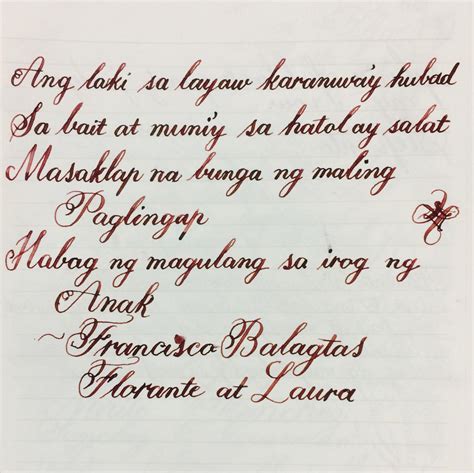 Ang laki sa layaw karanuwa'y hubad
Sa bait at muni'y sa hatol ay salat
Masaklap na bunga ng maling
Paglingap
Habag ng magulang sa irog ng
Anak
~Francisco Balagtas
Florante at Laura